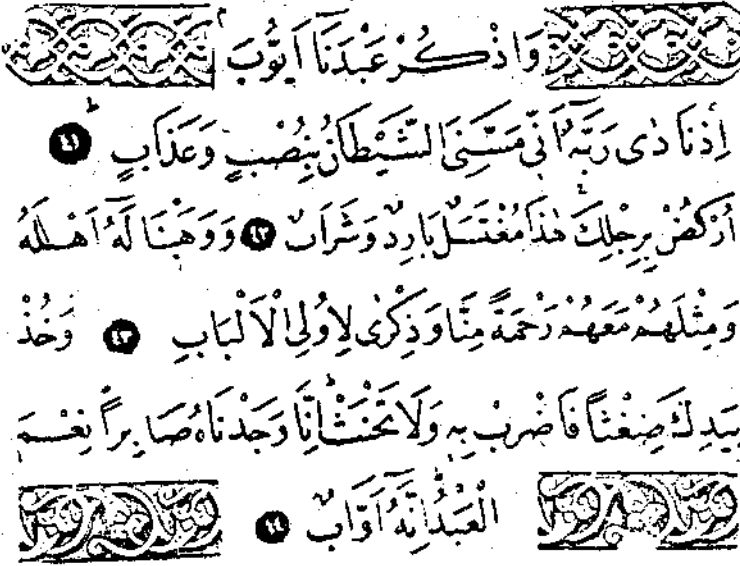 وَاذْكُرْ عَبْدَنَٓا اَيُّوبَۢ
اِذْ نَادٰى رَبَّهُٓ اَنّٖي مَسَّنِيَ الشَّيْطَانُ بِنُصْبٍ وَعَذَابٍۜ ﴿٤١﴾
اُرْكُضْ بِرِجْلِكَۚ هٰذَا مُغْتَسَلٌ بَارِدٌ وَشَرَابٌ ﴿٤٢﴾ وَوَهَبْنَا لَهُٓ اَهْلَهُ
وَمِثْلَهُمْ مَعَهُمْ رَحْمَةً مِنَّا وَذِكْرٰى لِاُولِي الْاَلْبَابِ ﴿٤٣﴾ وَخُذْ
بِيَدِكَ ضِغْثاً فَاضْرِبْ بِهٖ وَلَا تَحْنَثْۜ اِنَّا وَجَدْنَاهُ صَابِراًۜ نِعْمَ
الْعَبْدُۜ اِنَّهُٓ اَوَّابٌ ﴿٤٤﴾